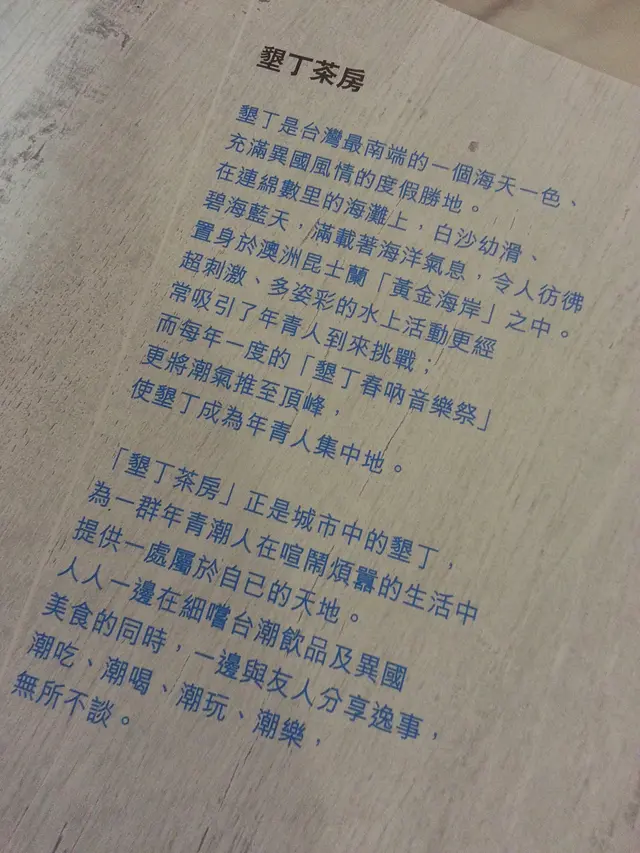 墾丁茶房
墾丁是台灣最南端的一個海天一色、
充滿異國風情的度假勝地。
在連綿數里的海灘上，白沙幼滑、
碧海藍天，滿載著海洋氣息，令人彷彿
置身於澳洲昆士蘭「黃金海岸」之中。
超刺激、多姿彩的水上活動更經
常吸引了年青人到來挑戰；
而每年一度的「墾丁春吶音樂祭」
更將潮氣推至頂峰，
使墾丁成為年青人集中地。
「墾丁茶房」正是城市中的墾丁，
為一群年青潮人在喧鬧煩囂的生活中
提供一處屬於自已的天地。
人人一邊在細嚐台潮飲品及異國
美食的同時，一邊與友人分享逸事，
潮吃、潮喝、潮玩、潮樂，
無所不談。